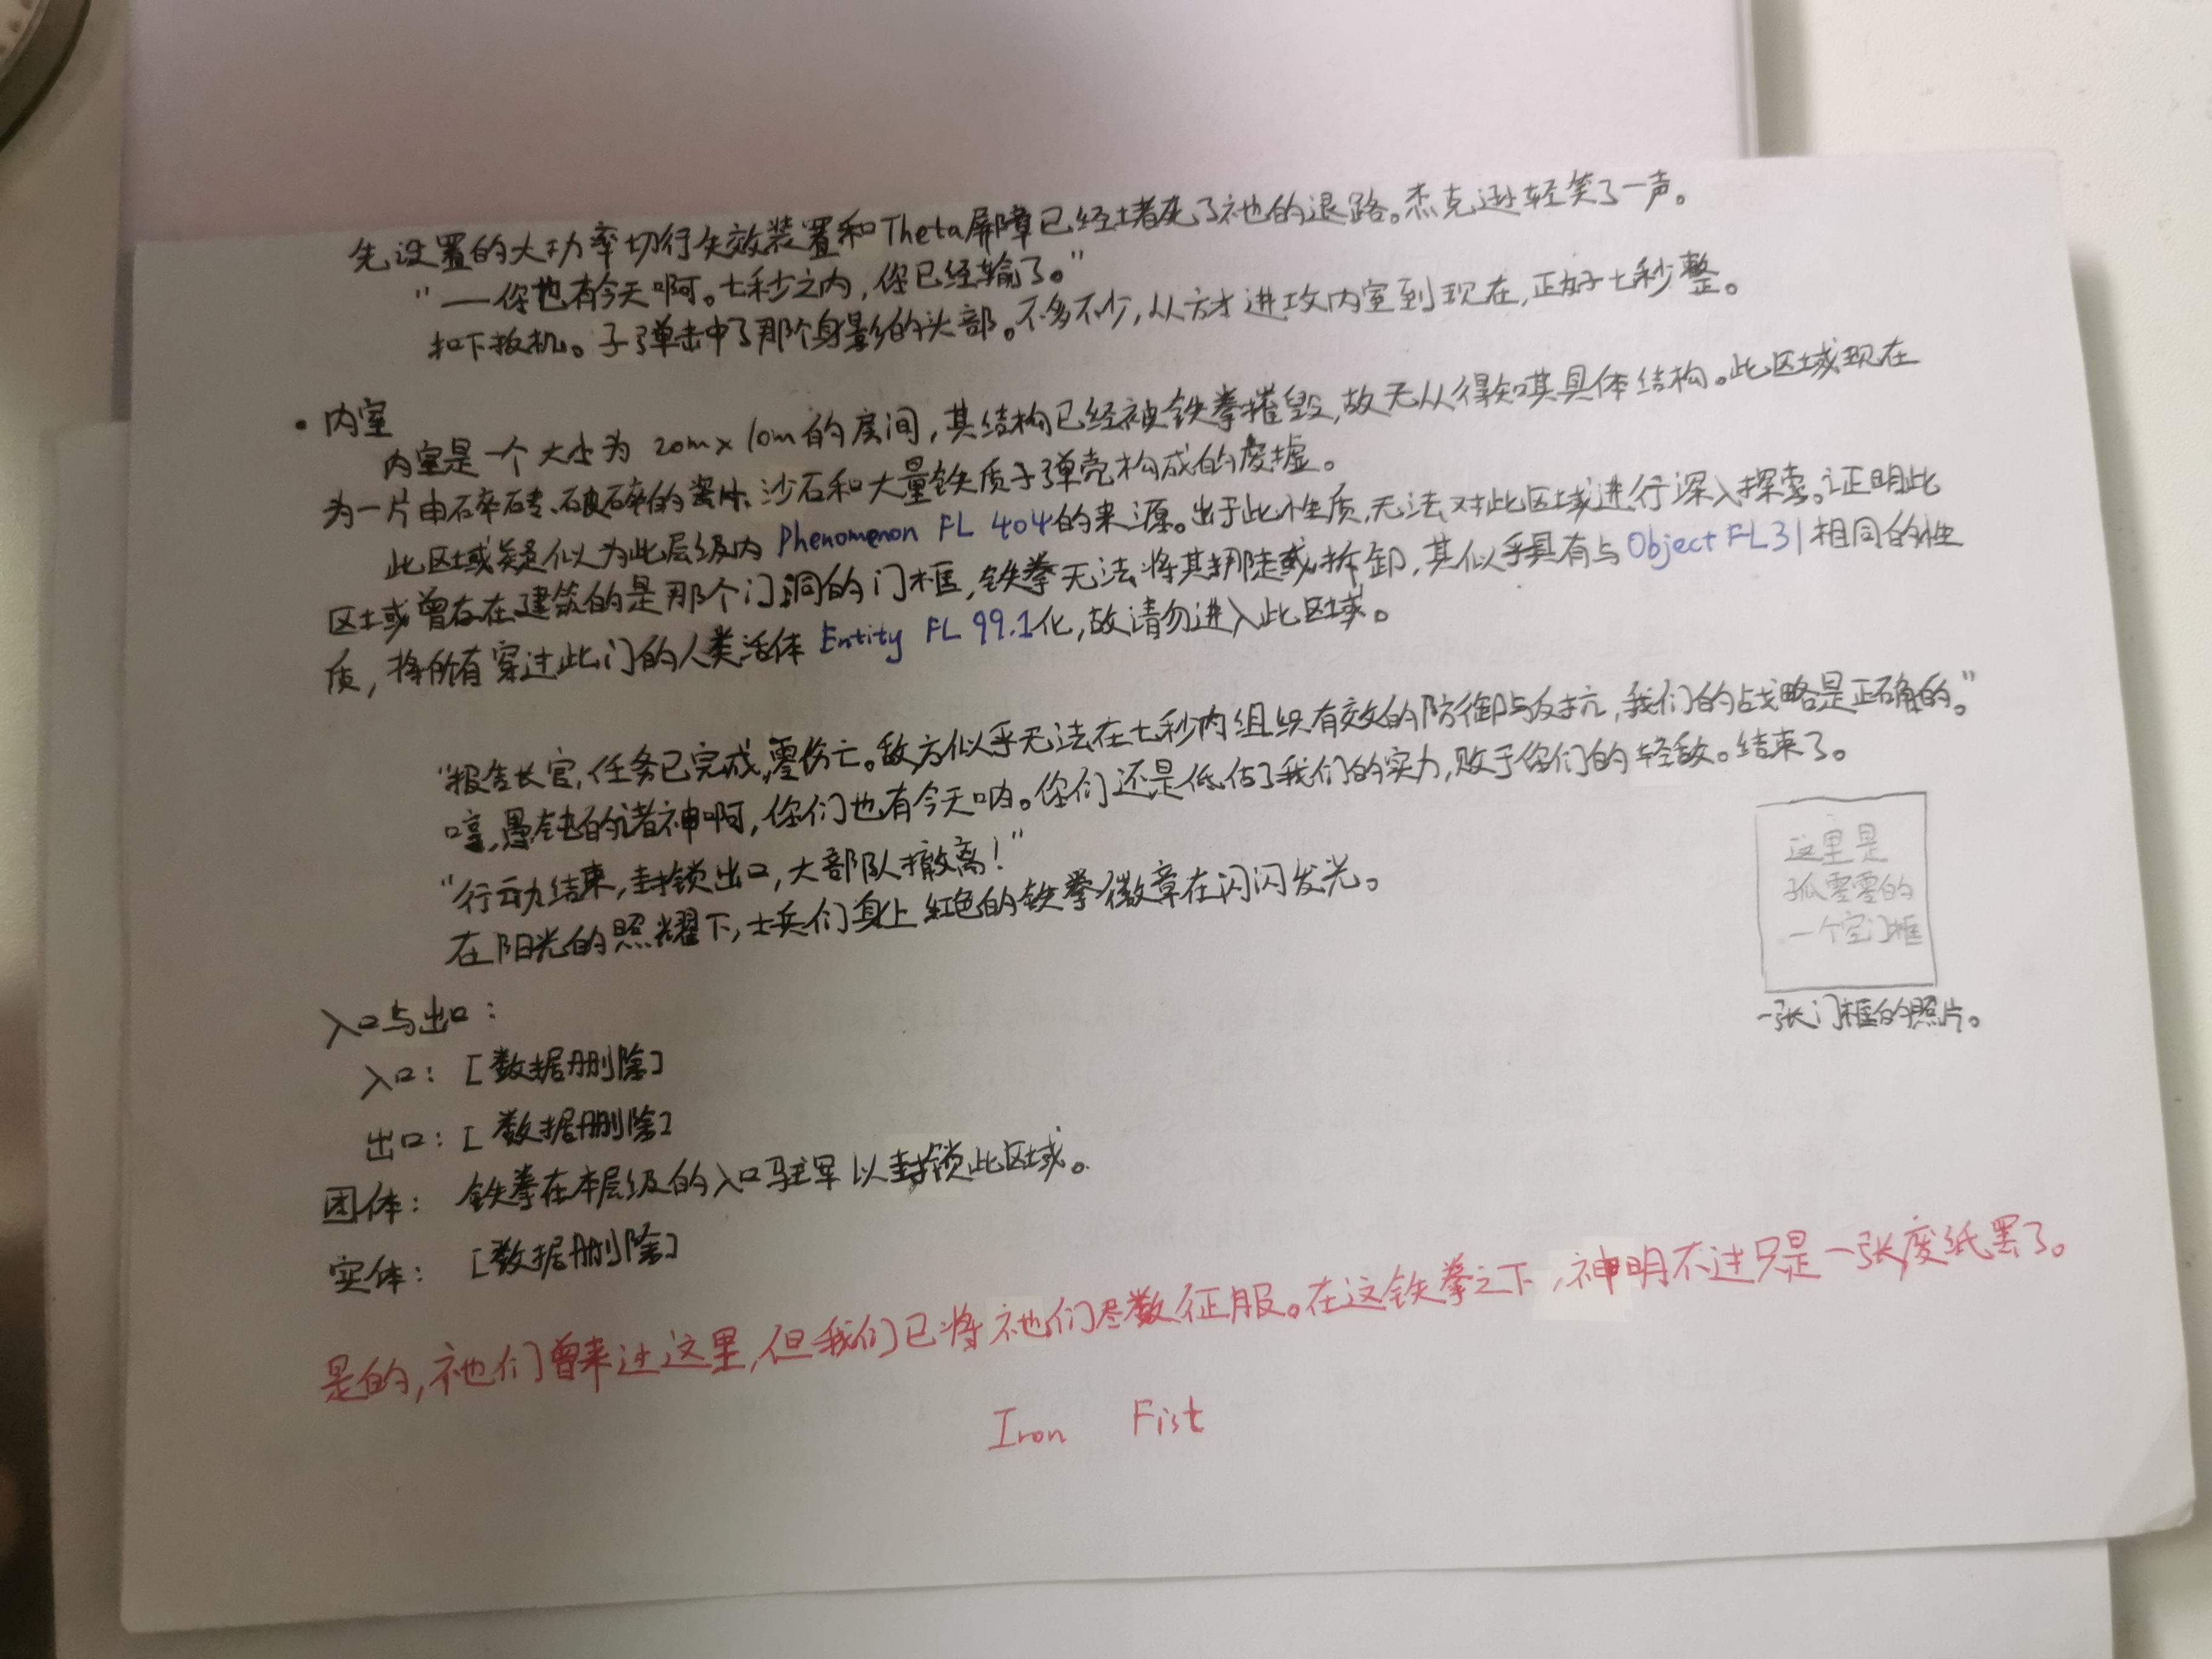 先设置的大功率切行失效装置和Theta屏障已经堵死了祂的退路。杰克逊轻笑了一声。
"——你也有今天啊。七秒之内，你已经输了。"
扣下扳机。子弹击中了那个身影的头部。不多不少，从方才进攻内室到现在，正好七秒整。
• 内室
内室是一个大小为 20m×10m的房间，其结构已经被铁拳摧毁，故无从得知其具体结构。此区域现在
为一片由碎砖、破碎的瓷片、沙石和大量铁质子弹壳构成的废墟。
此区域疑似为此层级内 Phenomenon FL 404的来源。出于此性质，无法对此区域进行深入探索。证明此
区域曾存在建筑的是那个门洞的门框，铁拳无法将其挪走或拆卸，其似乎具有与Object FL31相同的性
质，将所有穿过此门的人类活体 Entity FL 99.1化，故请勿进入此区域。
"报告长官，任务已完成，零伤亡。敌方似乎无法在七秒内组织有效的防御与反抗，我们的战略是正确的。"
哼，愚钝的诸神啊，你们也有今天呐。你们还是低估了我们的实力，败于你们的轻敌。结束了。
"行动结束，封锁出口，大部队撤离！"
在阳光的照耀下，士兵们身上红色的铁拳徽章在闪闪发光。
这里是
孤零零的
一个空门框
一张门框的照片。
入口与出口：
入口：[数据删除]
出口：[数据删除]
团体： 铁拳在本层级的入口驻军以封锁此区域。
实体： [数据删除]
是的，祂们曾来过这里，但我们已将祂们尽数征服。在这铁拳之下，神明不过只是一张废纸罢了。
Iron Fist